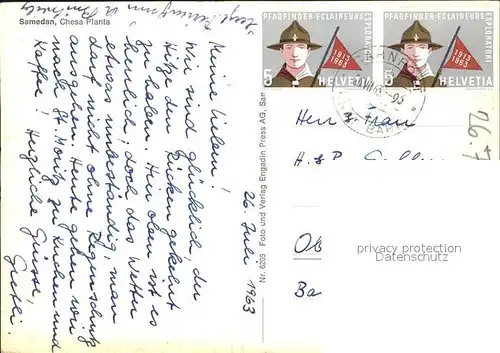 Samedan, Chesa Planta
26. Juli 1963
Meine Lieben!
Wir sind glücklich, der
Hitze den Rücken gekehrt
zu haben. Hier oben ist es
herrlich, doch das Wetter
etwas unbeständig, man
darf nicht ohne Regenschutz
ausgehen. Heute gehen wir
nach St. Moritz zu Kuchen und
Kaffee! Herzliche Grüsse,
Nr. 6205 Foto und Verlag Engadin Press AG, Sam
PFADFINDER·ECLAIREURS
ESPLORATORI
1913
1963
5 HELVETIA
PFADFINDER·ECLAIREURS
ESPLORATORI
1913
1963
5 HELVETIA
Herr Frau
H. & P.
Ob
Ba
26.7
privacy protection
Datenschutz